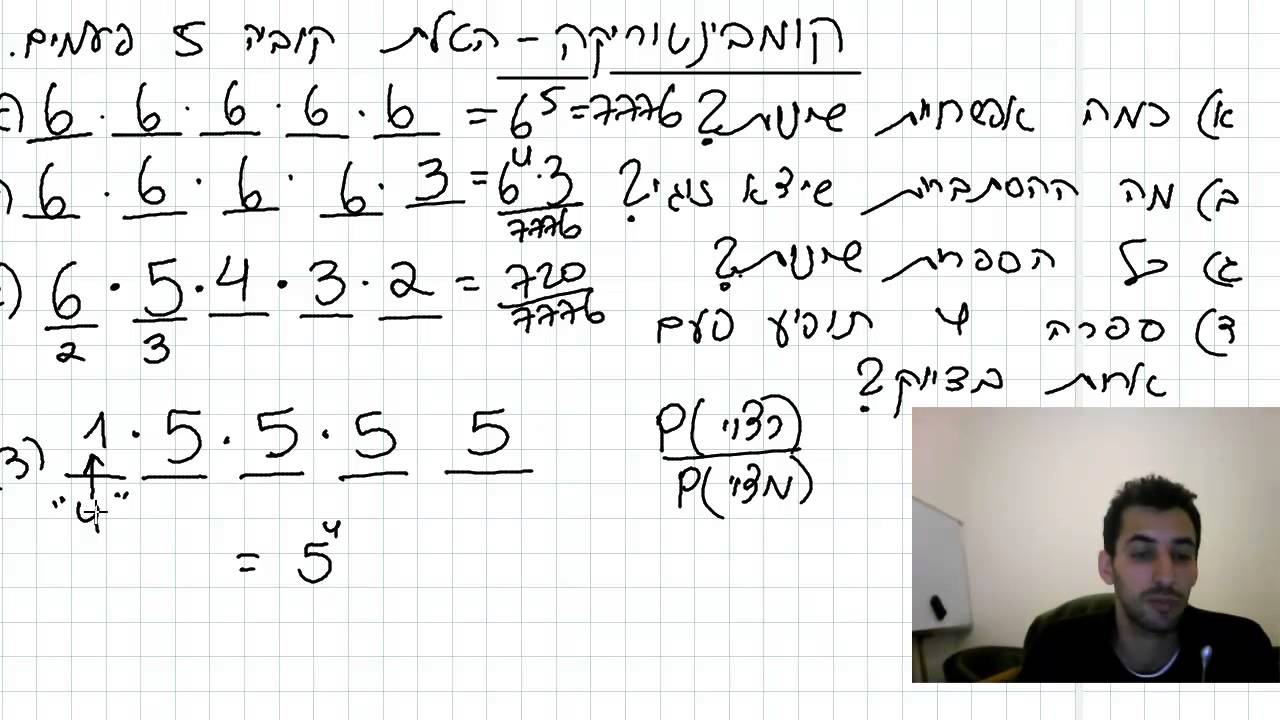 קומבינטוריקה - הטלת קוביה 5 פעמים.
א) כמה אפשרויות שונות?
6 · 6 · 6 · 6 · 6 = 6^5 = 7776
ב) מה ההסתברות שיצא זוגי?
6 · 6 · 6 · 6 · 3 = 6^4 · 3 / 7776
ג) כל הספרות שונות?
6 · 5 · 4 · 3 · 2 = 720 / 7776
2 3
ד) ספרה 4 תופיע פעם
אחת בדיוק?
3) 1 · 5 · 5 · 5 5
"4"
= 5^4
P(רצוי)
P(מצוי)